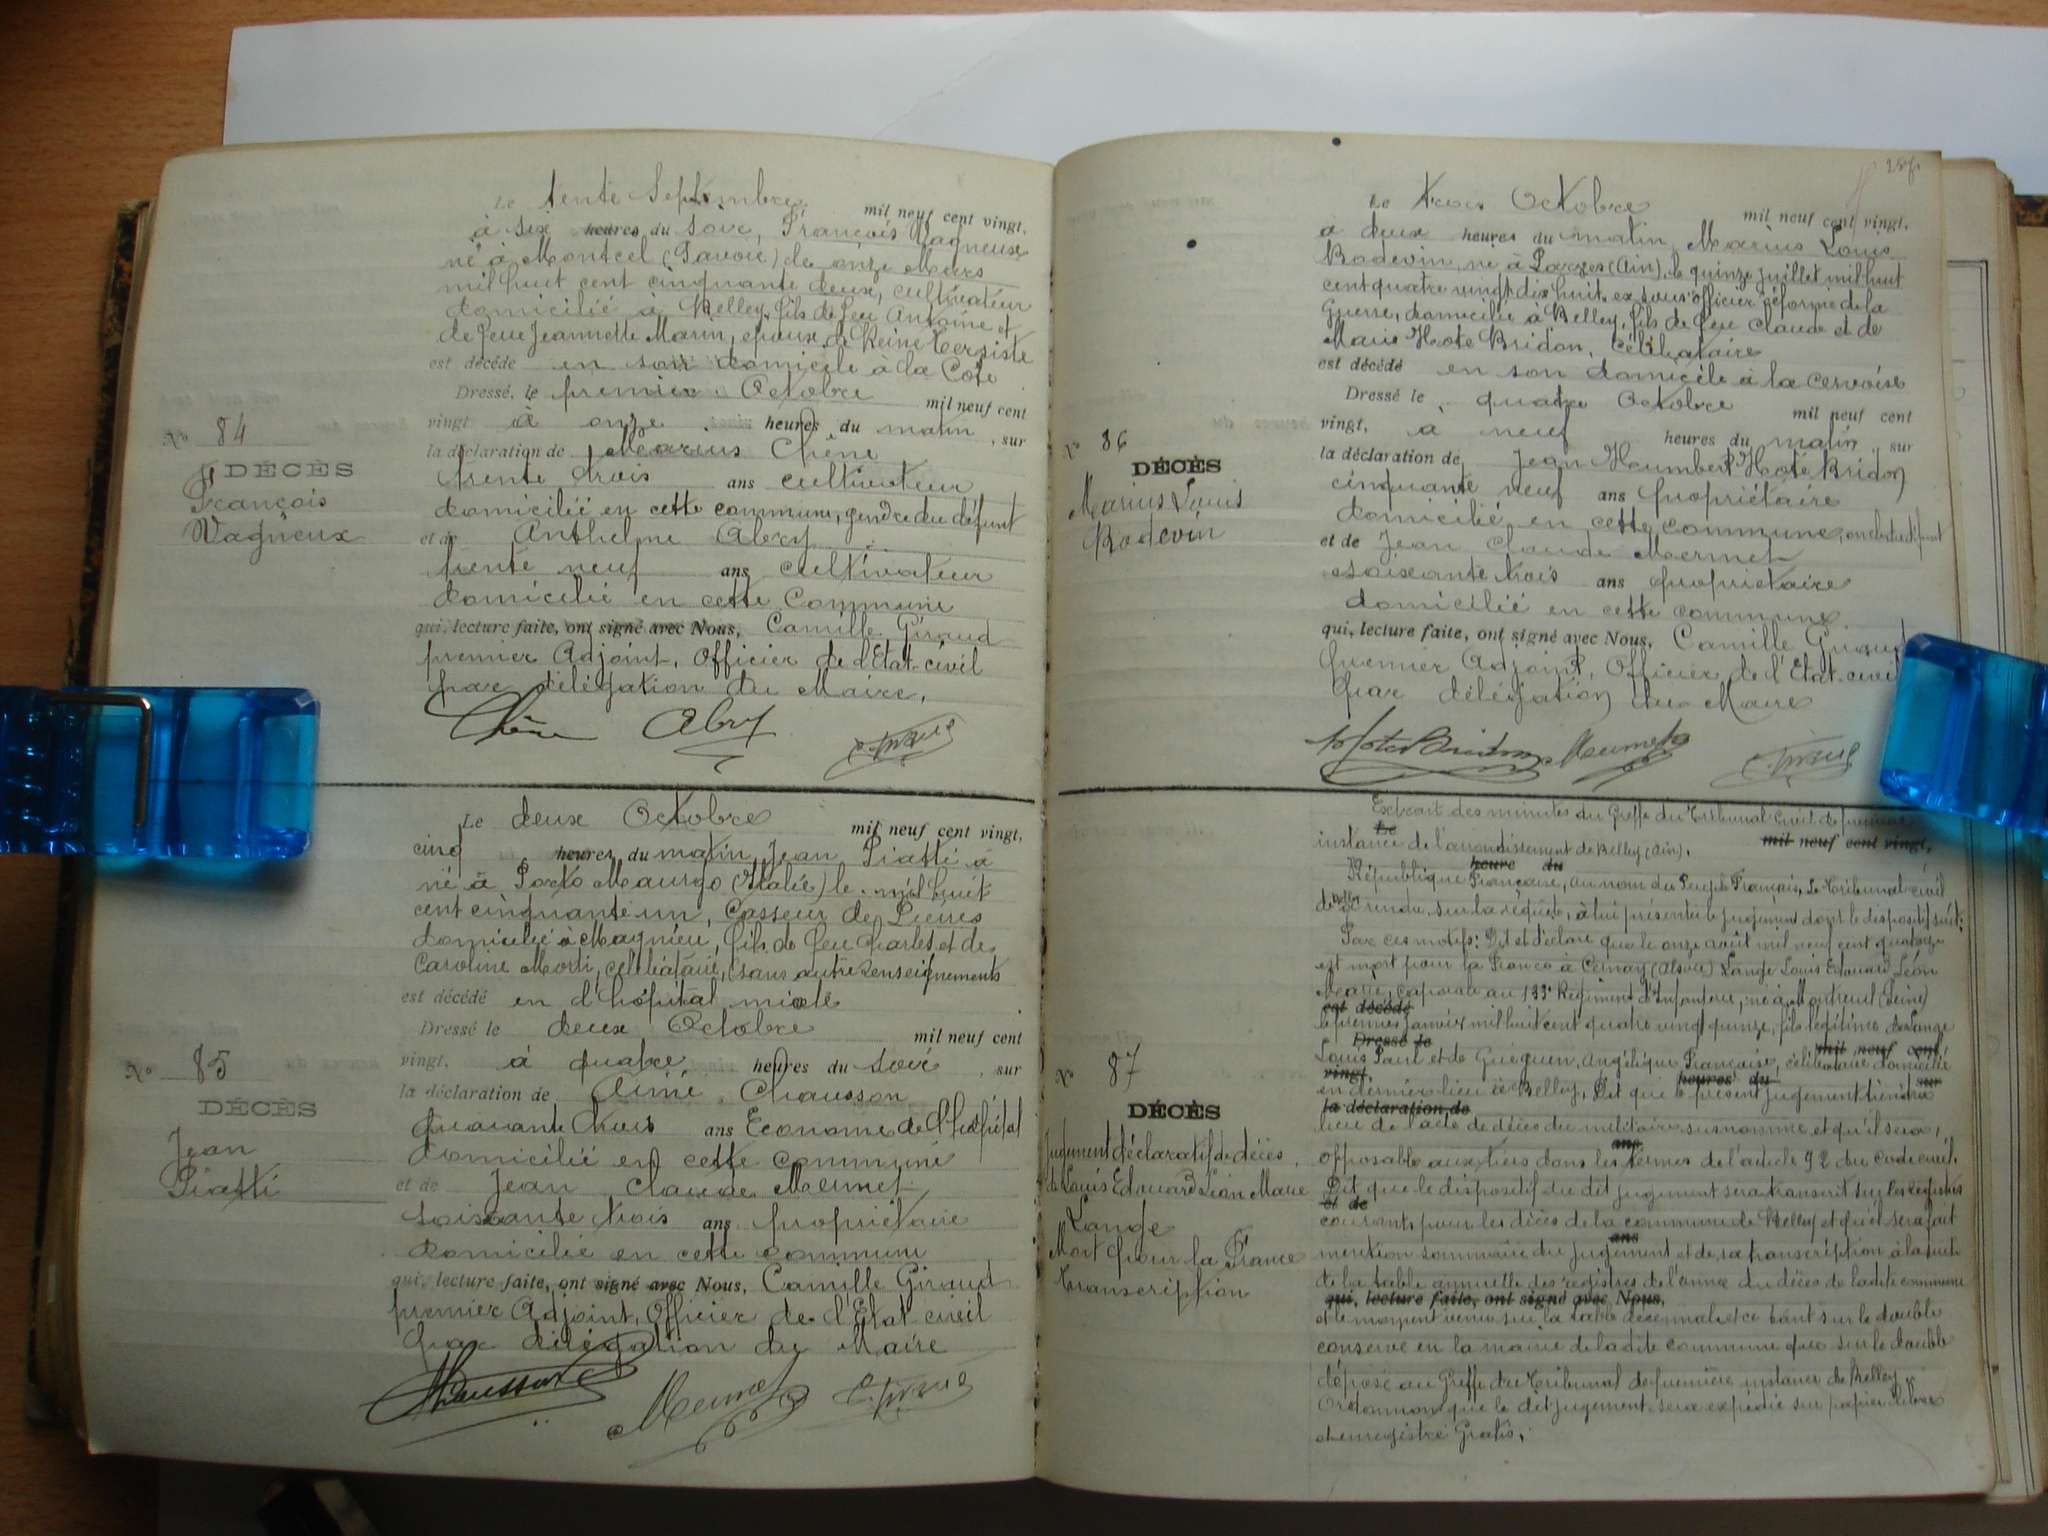 Le trente Septembre mil neuf cent vingt,
à six heures du soir, François Vagneux
né à Montcel (Savoie) le onze Mars
mil huit cent cinquante deux, cultivateur
domicilié à Belley, fils de feu Antoine et
de feue Jeannette Marin, époux de Reine
est décédé en son domicile à la Côte
Dressé, le premier Octobre mil neuf cent
vingt à onze heures du matin, sur
la déclaration de Marius Chêne
trente trois ans cultivateur
domicilié en cette commune, gendre du défunt
et de Anthelme Abry
trente neuf ans cultivateur
domicilié en cette Commune
qui, lecture faite, ont signé avec Nous, Camille Giraud
premier Adjoint, Officier de l'Etat-civil
par délégation du Maire.
Chêne Abry C. Giraud
No 84
DÉCÈS
François
Vagneux
Le deux Octobre mil neuf cent vingt,
cinq heures du matin, Jean Piatti à
né à Porto Maurizo (Italie) le mil huit
cent cinquante un, Casseur de Pierres
domicilié à Magnieu, fils de feu Charles et de
Caroline Morti, célibataire, (sans autre renseignements
est décédé en l'hôpital mixte
Dressé le deux Octobre mil neuf cent
vingt, à quatre heures du soir, sur
la déclaration de Aimé Chausson
quarante trois ans Econome de l'hôpital
domicilié en cette commune
et de Jean Claude Mermet
soixante trois ans propriétaire
domicilié en cette commune
qui, lecture faite, ont signé avec Nous, Camille Giraud
premier Adjoint, Officier de l'Etat civil
par délégation du Maire
Chausson Mermet C. Giraud
No 85
DÉCÈS
Jean
Piatti
Le trois Octobre mil neuf cent vingt,
à deux heures du matin, Marius Louis
Bodevin, né à (Ain), le quinze juillet mil huit
cent quatre vingt dix huit, ex sous officier réformé de la
Guerre, domicilié à Belley, fils de feu Claude et de
Marie Hote Bridon, Célibataire
est décédé en son domicile à la cervoise
Dressé le quatre Octobre mil neuf cent
vingt, à neuf heures du matin, sur
la déclaration de Jean Humbert Hote Bridon
cinquante neuf ans propriétaire
domicilié en cette commune, oncle du défunt
et de Jean Claude Mermet
soixante trois ans propriétaire
domicilié en cette commune
qui, lecture faite, ont signé avec Nous, Camille Giraud
premier Adjoint, Officier de l'Etat-civil
par délégation du Maire
Hote Bridon Mermet C. Giraud
No 86
DÉCÈS
Marius Louis
Bodevin
Extrait des minutes du Greffe du Tribunal Civil de première
Le mil neuf cent vingt,
instance de l'arrondissement de Belley (Ain).
heure du
République Française, au nom du Peuple Français, Le Tribunal civil
de Belley a rendu, sur la requête, à lui présentée le jugement dont le dispositif suit:
Par ces motifs: Dit et déclare que le onze août mil neuf cent quatorze
est mort pour la France à Cernay (Alsace) Lange Louis Edouard Léon
Marie, caporal au 133e Régiment d'Infanterie, né à Montreuil (Seine)
est décédé
le premier janvier mil huit cent quatre vingt quinze, fils légitime de Lange
Dressé le mil neuf cent
Louis Paul et de Guéguen, Angélique Françoise, célibataire domicilié
vingt, heures du sur
en dernier lieu à Belley, Dit que le présent jugement tiendra
la déclaration de
lieu de l'acte de décès du militaire susnommé et qu'il sera,
ans
opposable aux tiers dans les termes de l'article 92 du Code civil.
Dit que le dispositif du dit jugement sera transcrit sur les registres
et de
courants pour les décès de la commune de Belley et qu'il sera fait
ans
mention sommaire du jugement et de sa transcription à la suite
de la table annuelle des registres de l'année du décès de ladite commune
qui, lecture faite, ont signé avec Nous,
et le moment venu sur la table décennale et ce tant sur le double
conservé en la mairie de ladite commune que sur le double
déposé au Greffe du Tribunal de première instance de Belley.
Ordonnons que le dit jugement sera expédié sur papier libre
et enregistré Gratis.
No 87
DÉCÈS
Jugement déclaratif de décès
de Louis Edouard Léon Marie
Lange
Mort pour la France
transcription